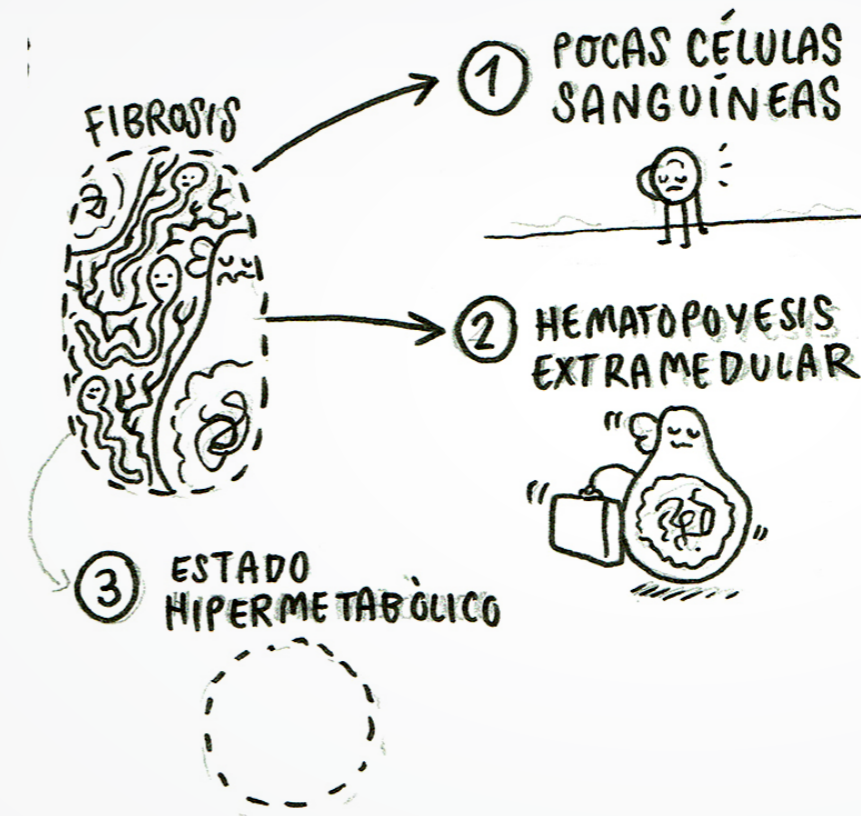 FIBROSIS
1 POCAS CÉLULAS
SANGUÍNEAS
2 HEMATOPOYESIS
EXTRAMEDULAR
3 ESTADO
HIPERMETABÒLICO